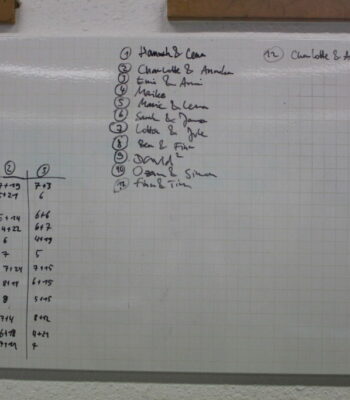 ① Hannah & Lena
② Charlotte & Annika
③ Emi & Anni
④ Maike
⑤ Marie & Lena
⑥ Sarah & Jana
⑦ Lotta & Jule
⑧ Ben & Finn
⑨ David²
⑩ Ozan & Simon
⑪ Finn & Tim
⑫ Charlotte & A
② ③
7+19 7+3
5+21 6
5+14 6+6
4+22 6+7
6 4+19
7 5
7+21 7+15
8+19 6+15
8 5+15
7+4 8+12
6+18 4+21
7+19 7